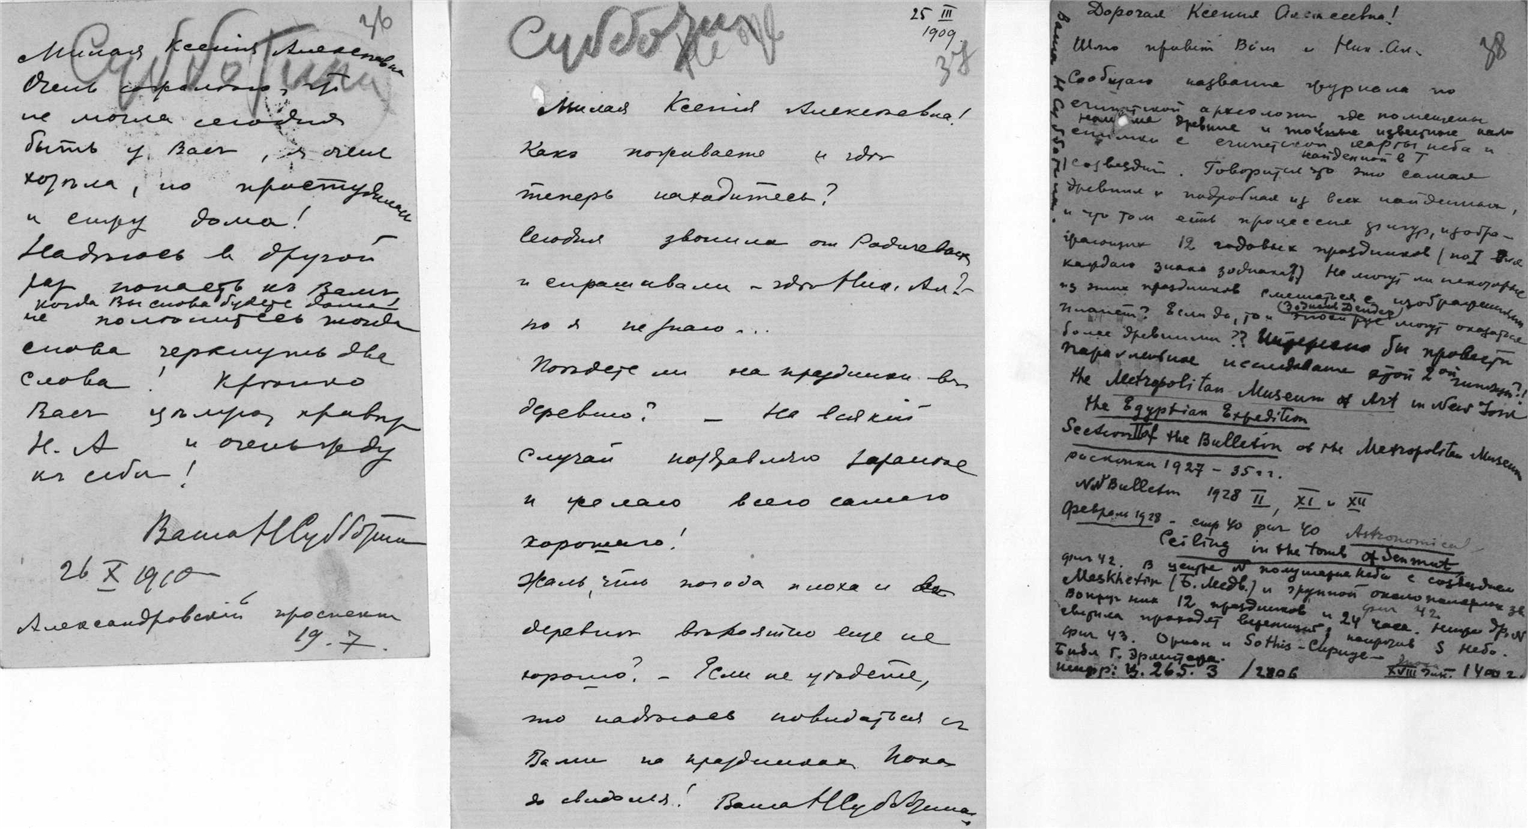 36
Субботина
Милая Ксенія Алексѣевна
Очень сожалѣю, что
не могла сегодня
быть у Васъ, я очень
хотѣла, но простудилась
и сижу дома!
Надѣюсь въ другой
разъ попасть къ Вамъ
когда Вы снова будете дома!
не полѣнитесь тогда
снова черкнуть два
слова! Крѣпко
Васъ цѣлую, привѣтъ
Н. А и очень жду
къ себѣ!
Ваша НСубботина
26 X 1910
Александровскій проспектъ
19. 7.
Субботина
25 III
1909
38
Милая Ксенія Алексѣевна!
Какъ поживаете и гдѣ
теперь находитесь?
Сегодня звонили от Родичевыхъ
и спрашивали – гдѣ Ник. Ал.?
но я не знаю...
Поѣдете ли на праздники въ
деревню? – На всякій
случай поздравляю заранѣе
и желаю всего самаго
хорошаго!
Жаль, что погода плоха и въ
деревнѣ вѣроятно еще не
хорошо? – Если не уѣдете,
то надѣюсь повидаться съ
Вами на праздникахъ Пока
до свиданья! Ваша НСубботина
38
Дорогая Ксения Алексеевна!
Шлю привет Вам и Ник. Ал.
Сообщаю название журнала по
египетской археологии где помещены
наиболее древние и точные известные нам
снимки с египетской карты неба и
найденной в
созвездий. Говорится что это самая
древняя и подробная из всех найденных,
и что там есть процессия фигур, изобра-
жающих 12 годовых праздников (по I для
каждого знака зодиака?) Не могут ли некоторые
из этих праздников смешаться с изображениями
планет? Если да, то и Зодиак Дендер могут оказаться
более древними?? Интересно бы провести
параллельное исследование этой 2ой гипотезы?!
the Metropolitan Museum of Art in New York
the Egyptian Expedition
Section II of the Bulletin of the Metropolitan Museum
раскопки 1927 – 35 гг.
NN Bulletin 1928 II, XI и XII
Февраль 1928 – стр 40 фиг 40 Astronomical
Ceiling in the tomb of Senmut
фиг 42. В центре N полушарие неба с созвездием
Meskhetiu (Б. Медв.) и группой околополярных зв
Вокруг них 12 праздников и 24 часа. фиг 42
светила проходят вереницей, напротив S небо.
фиг 43. Орион и Sothis – Сириус
Библ Г. Эрмитажа.
шифр: Ц. 265. 3 / 2806 XVIII дин. 1400 г.
Ваша Н Субботина.